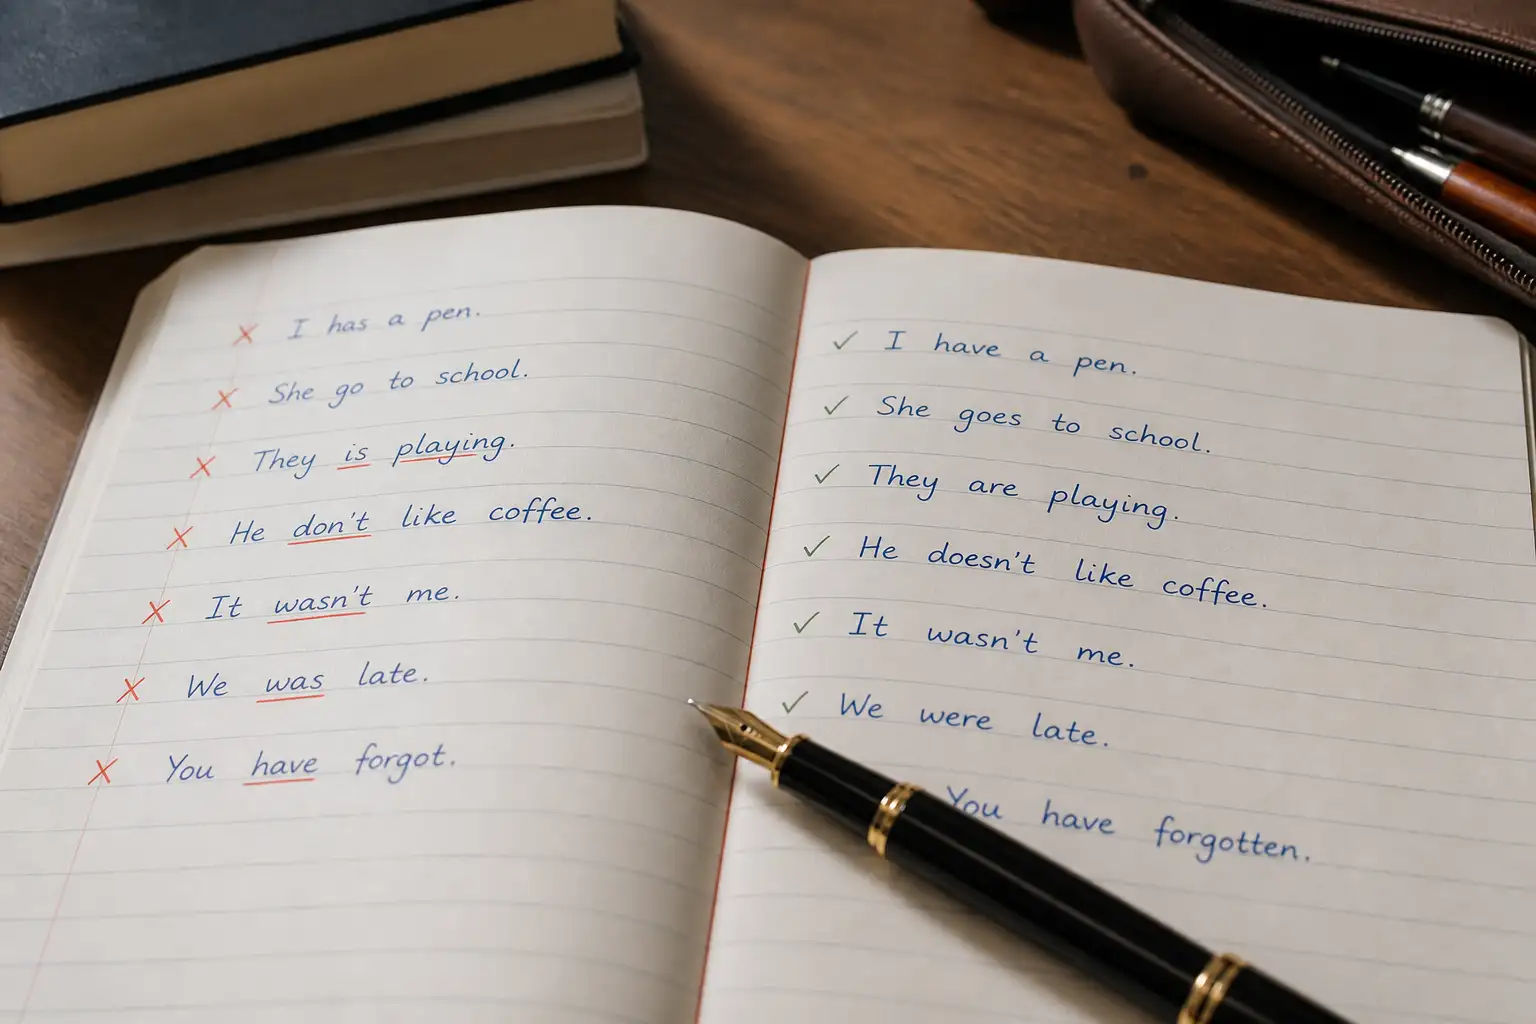 I has a pen.
She go to school.
They is playing.
He don't like coffee.
It wasn't me.
We was late.
You have forgot.
I have a pen.
She goes to school.
They are playing.
He doesn't like coffee.
It wasn't me.
We were late.
You have forgotten.